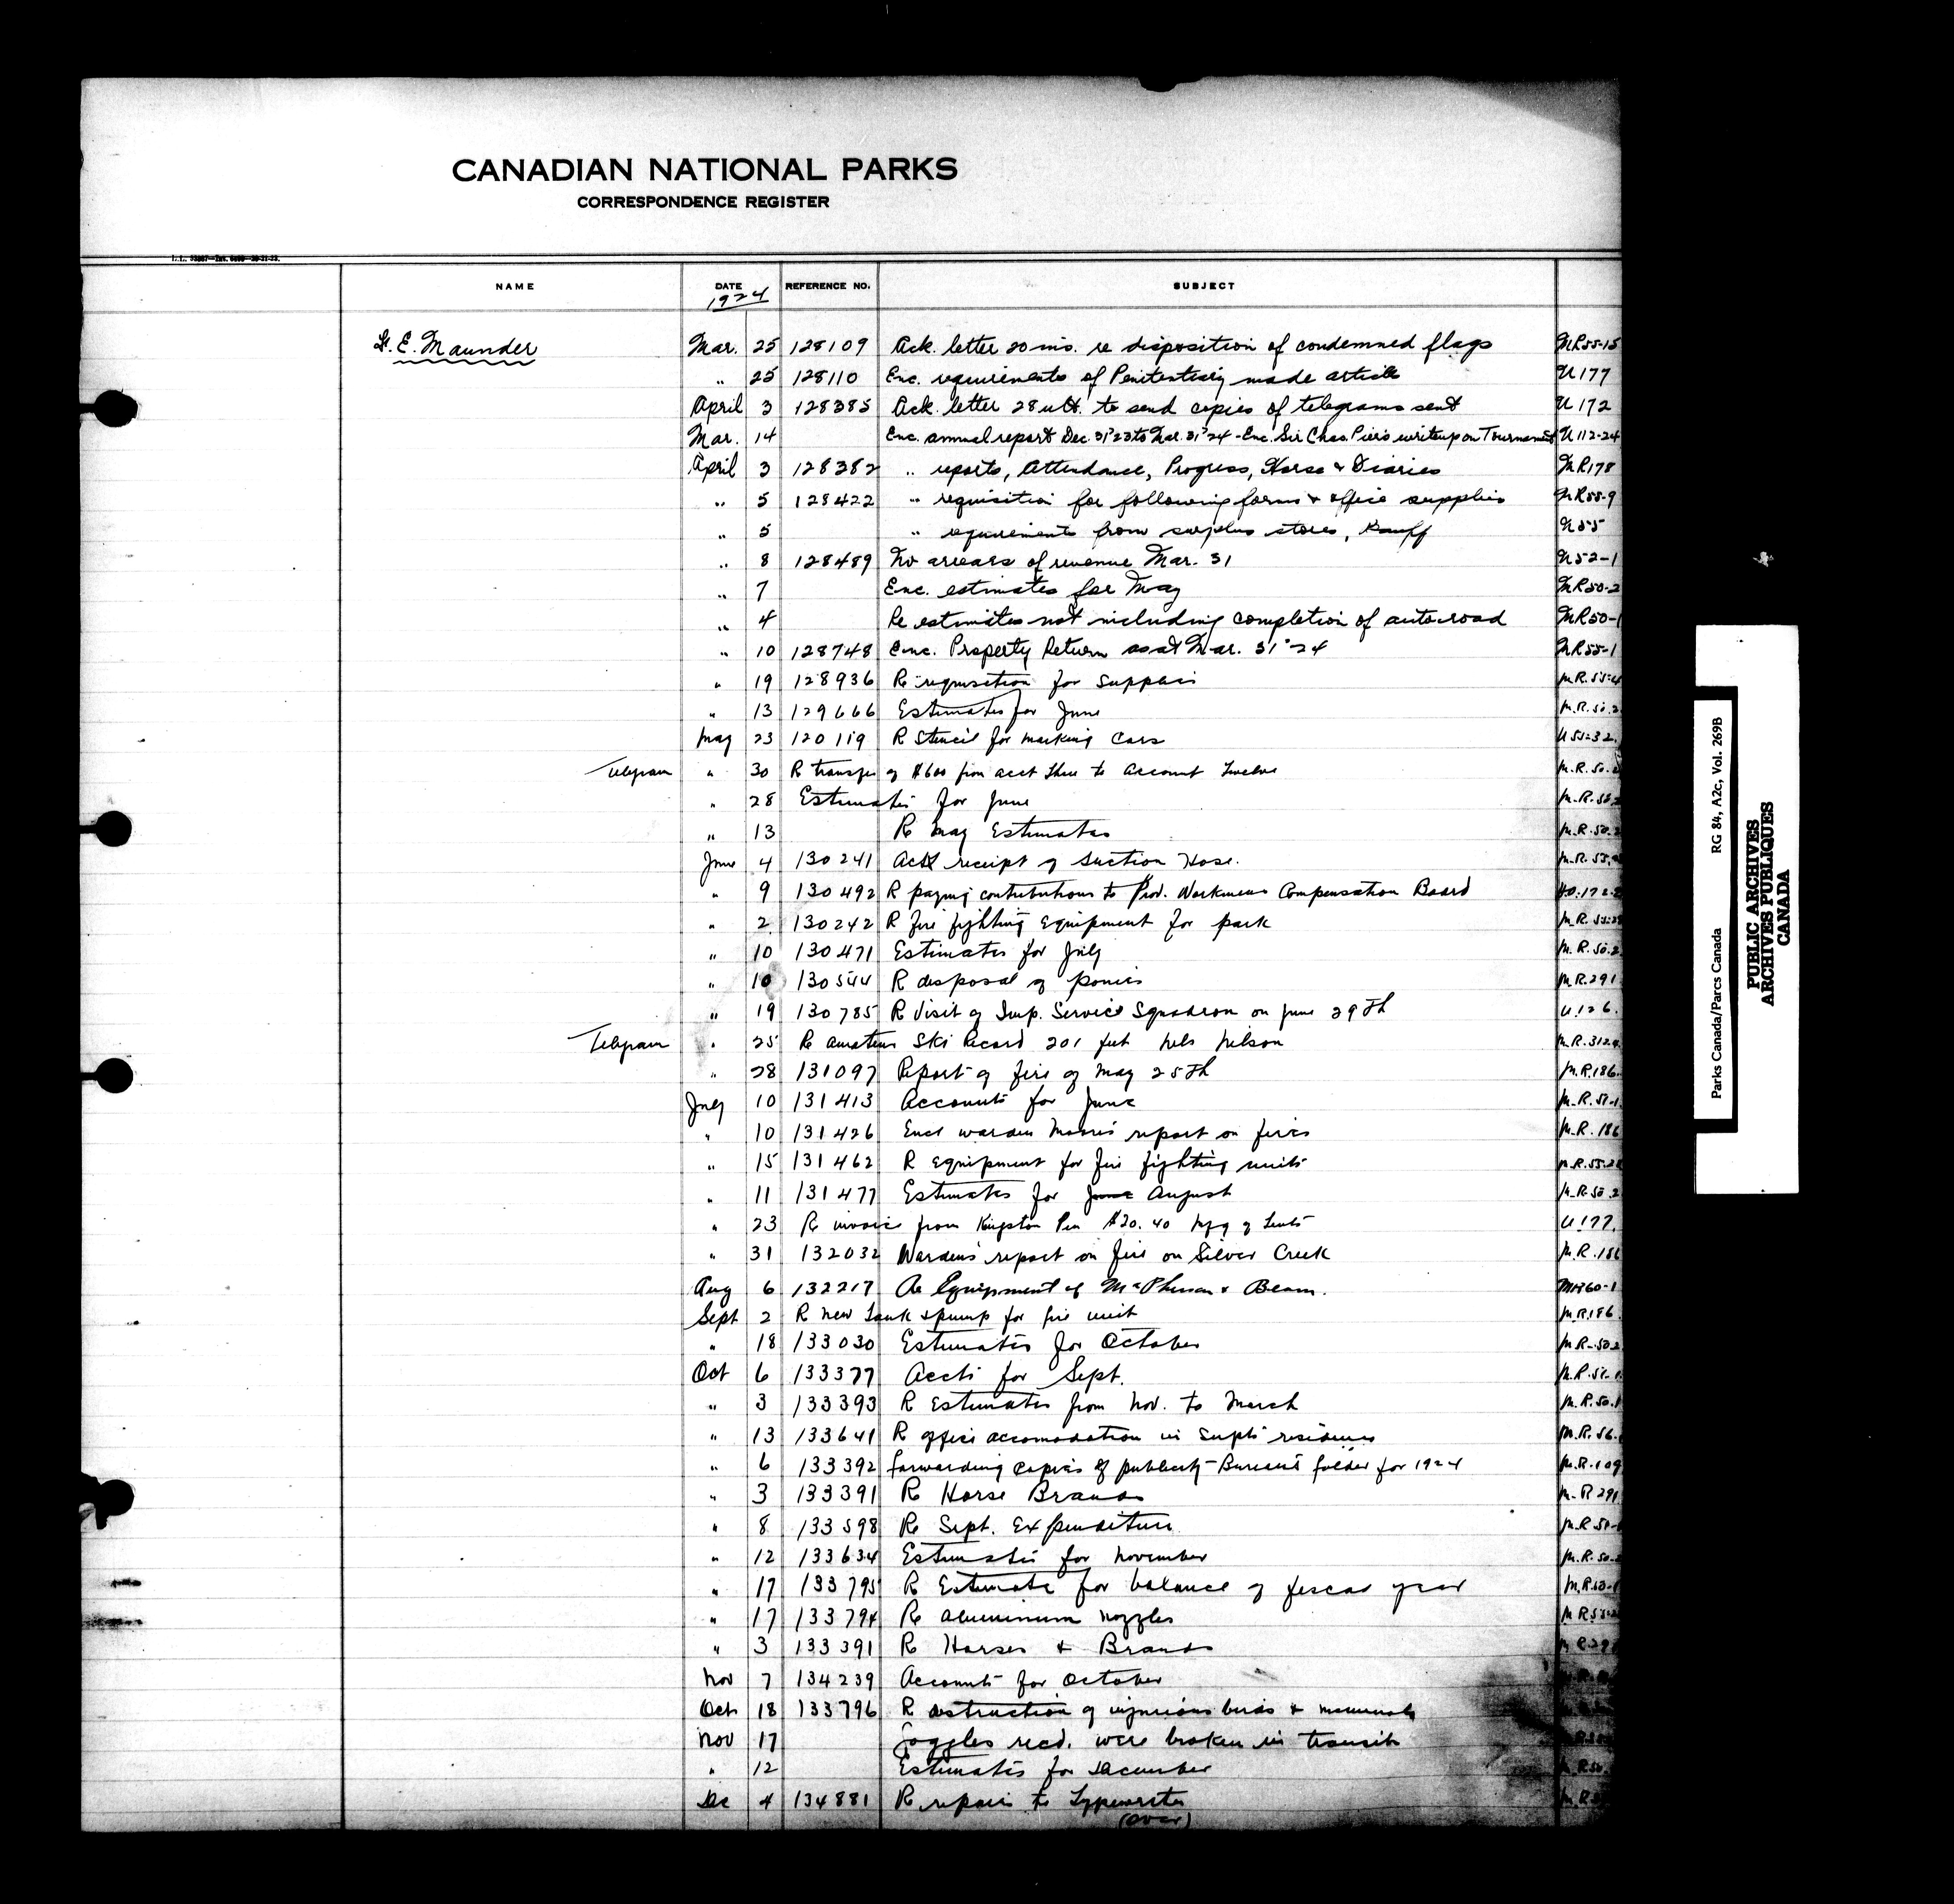 CANADIAN NATIONAL PARKS
CORRESPONDENCE REGISTER
NAME DATE REFERENCE NO. SUBJECT
1924
E. Maunder Mar. 25 128109 Ack. letter 20 ins. re disposition of condemned flags MR55-15
" 25 128110 Enc. requirements of Penitentiary made article U177
April 3 128385 Ack. letter 28 ult. to send copies of telegrams sent U172
Mar. 14 Enc. annual report Dec. 31'23 to Mar. 31'24 - Enc. Sir Chas. Piers writeup on Tournament U112-24
April 3 128382 " reports, Attendance, Progress, Horse & Diaries MR178
" 5 128422 " requisition for following forms & office supplies MR55-9
" 5 " requirements from surplus stores, Banff U55
" 8 128489 No arrears of revenue Mar. 31 U52-1
" 7 Enc. estimates for May MR50-2
" 4 Re estimates not including completion of auto-road MR50-1
" 10 128748 Enc. Property Return as at Mar. 31'24 MR55-1
" 19 128936 Re requisition for supplies M.R.55-4
" 13 129666 Estimates for June M.R.50.2
May 23 120119 R Stencil for marking Cars U55-32.
Telegram " 30 R transfer of $600 from acct three to Account Twelve M.R.50.2
" 28 Estimates for June M.R.50.2
" 13 R May Estimates M.R.50.2
June 4 130241 Ack receipt of Suction Hose. M.R.55.
" 9 130492 R paying contributions to Prov. Workmens Compensation Board H.O.172-2
" 2 130242 R fire fighting Equipment for park M.R.55-28
" 10 130471 Estimates for July M.R.50.2
" 10 130544 R disposal of ponies M.R.291
" 19 130785 R Visit of Imp. Service Squadron on June 29th U126.
Telegram " 25 R amateur Ski Record 201 feet Nels Nelson M.R.312
" 28 131097 Report of fire of May 25th M.R.186.
July 10 131413 Accounts for June M.R.51-1
" 10 131426 Encl warden Moore's report on fires M.R.186
" 15 131462 R Equipment for fire fighting units M.R.55-28
" 11 131477 Estimates for June August M.R.50.2
" 23 R invoice from Kingston Pen $20.40 Mfg of Tents U177.
" 31 132032 Wardens' report on fire on Silver Creek M.R.186
Aug 6 132217 Re Equipment of McPherson & Beam. MR60-1
Sept 2 R new tank & pump for fire unit M.R.186.
" 18 133030 Estimates for October M.R-50.2
Oct 6 133377 Accts for Sept. M.R.51-1
" 3 133393 R Estimates from Nov. to March M.R.50.1
" 13 133641 R office accomodation in Supts' residence M.R.56.
" 6 133392 forwarding copies of publicity Bureau's folder for 1924 M.R.109
" 3 133391 R Horse Brands M.R 291
" 8 133598 R Sept. Expenditure M.R 51-
" 12 133634 Estimates for November M.R.50-2
" 17 133795 R Estimate for balance of fiscal year M.R.50-1
" 17 133794 R aluminum nozzles M R 55-2
" 3 133391 R Horses & Brands M R 291
Nov 7 134239 Accounts for October
Oct 18 133796 R destruction of injurious birds & mammals
Nov 17 Goggles recd. were broken in transit
" 12 Estimates for December M.R.50.
Dec 4 134881 R repairs to Typewriter
(over)
Parks Canada/Parcs Canada RG 84, A2c, Vol. 269B
PUBLIC ARCHIVES
ARCHIVES PUBLIQUES
CANADA